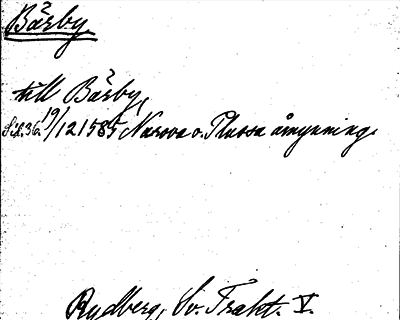 Bärby.
till Bärby,
Sid.36. 19/12 1585 Narova o. Plussa åmynning.
Rydberg, Sv. Trakt. V.